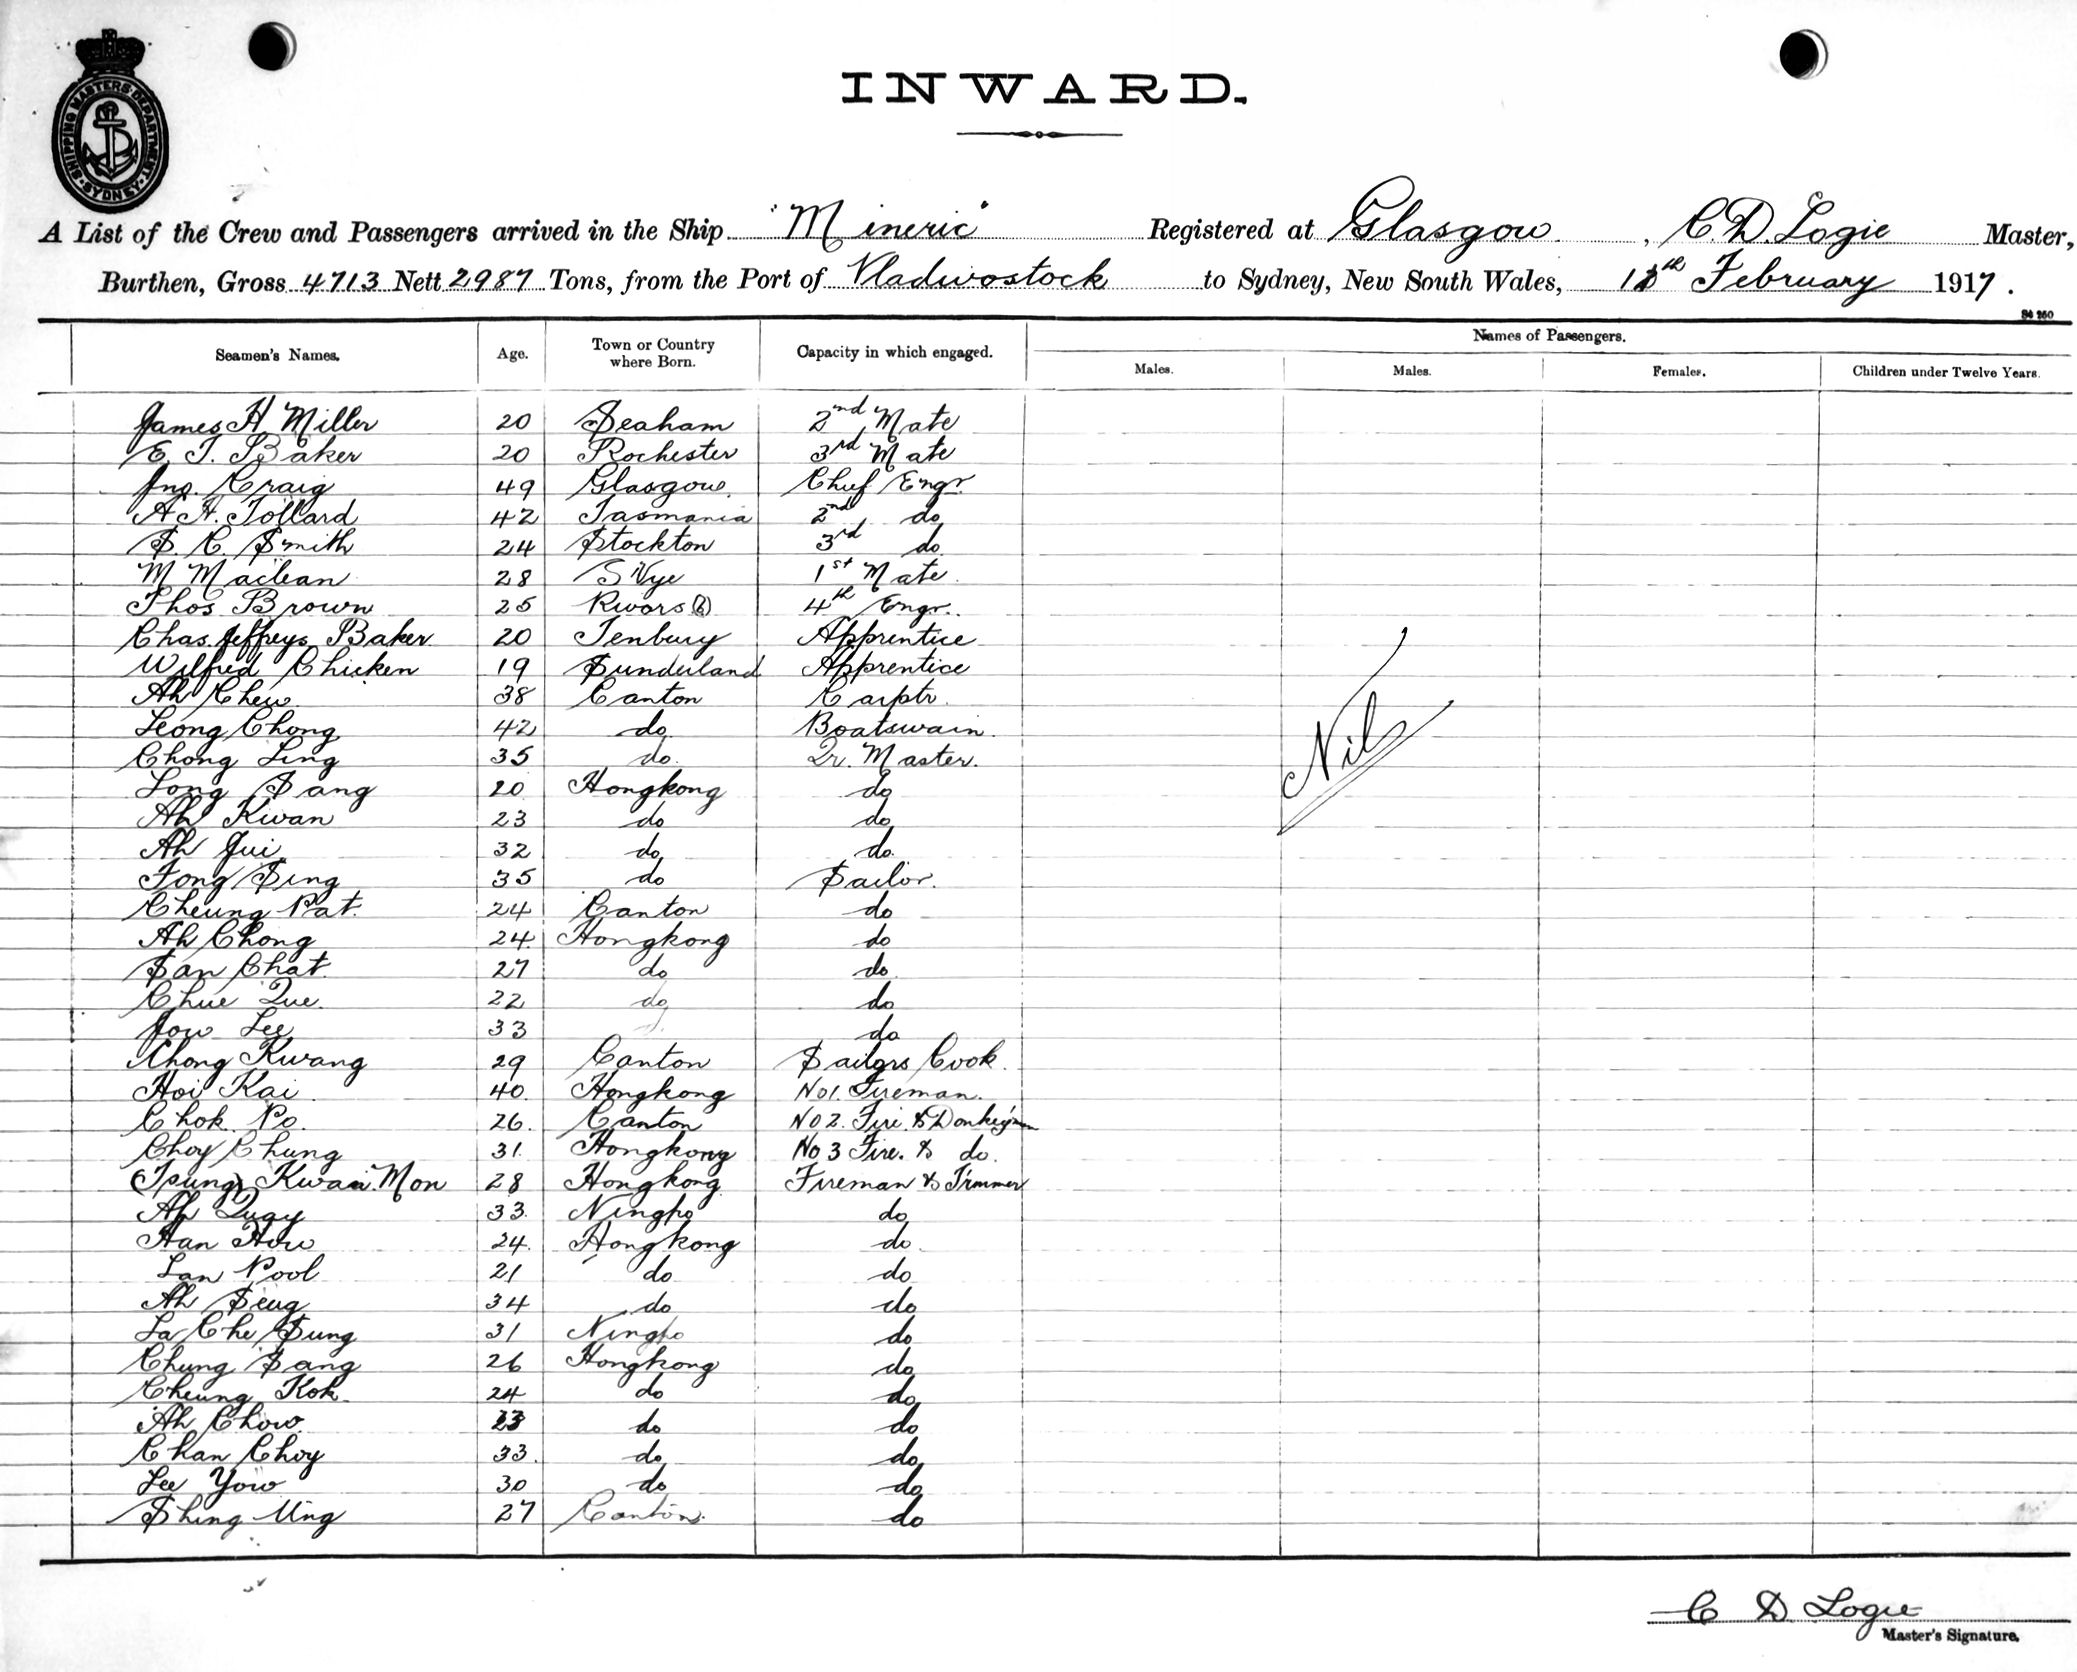 SHIPPING MASTERS DEPARTMENT SYDNEY
INWARD.
A List of the Crew and Passengers arrived in the Ship "Mineric" Registered at Glasgow, C. D. Logie Master,
Burthen, Gross 4713 Nett 2987 Tons, from the Port of Vladivostock to Sydney, New South Wales, February 1917.
Names of Passengers.
Seamen's Names. Age. Town or Country where Born. Capacity in which engaged. Males. Males. Females. Children under Twelve Years.
James H Miller 20 Seaham 2nd Mate
E. T. Baker 20 Rochester 3rd Mate
Jno. Craig 49 Glasgow. Chief Engr.
A H. Tollard 42 Tasmania 2nd do
S. C. Smith 24 Stockton 3rd do
M Maclean 28 1st Mate.
Thos Brown 25 4th Engr.
Chas. Jeffreys Baker 20 Tenbury Apprentice
Wilfred Chicken 19 Sunderland Apprentice
Ah Chew 38 Canton Carptr.
Leong Chong 42 do Boatswain.
Chong Ling 35 do. Qr. Master.
Long Sang 20 Hongkong do
Ah Kwan 23 do do
Ah Jui 32 do do.
Fong Sing 35 do Sailor.
Cheung Pat. 24 Canton do
Ah Chong 24 Hongkong do
San Chat 27 do do.
Chue Que. 22 do do
Jow Lee 33 do
Chong Kwang 29 Canton Sailors Cook.
Hoi Kai 40. Hongkong No 1. Fireman.
Chok Po. 26. Canton No 2. Fire. & Donkeyman
Choy Chung 31. Hongkong No 3 Fire. & do.
(Tsung) Kwan Mon 28 Hongkong Fireman & Trimmer
Ah Quay 33. Ningpo do
Han How 24. Hongkong do.
Lan Pool 21 do do
Ah Seng 34 do do
La Che Sung 31 Ningpo do
Chung Sang 26 Hongkong do
Cheung Kok. 24 do do
Ah Chow. 23 do do
Chan Choy 33. do do
Lee Yow 30 do do
Shing Ung 27 Canton. do
Nil
C D Logie
Master's Signature.